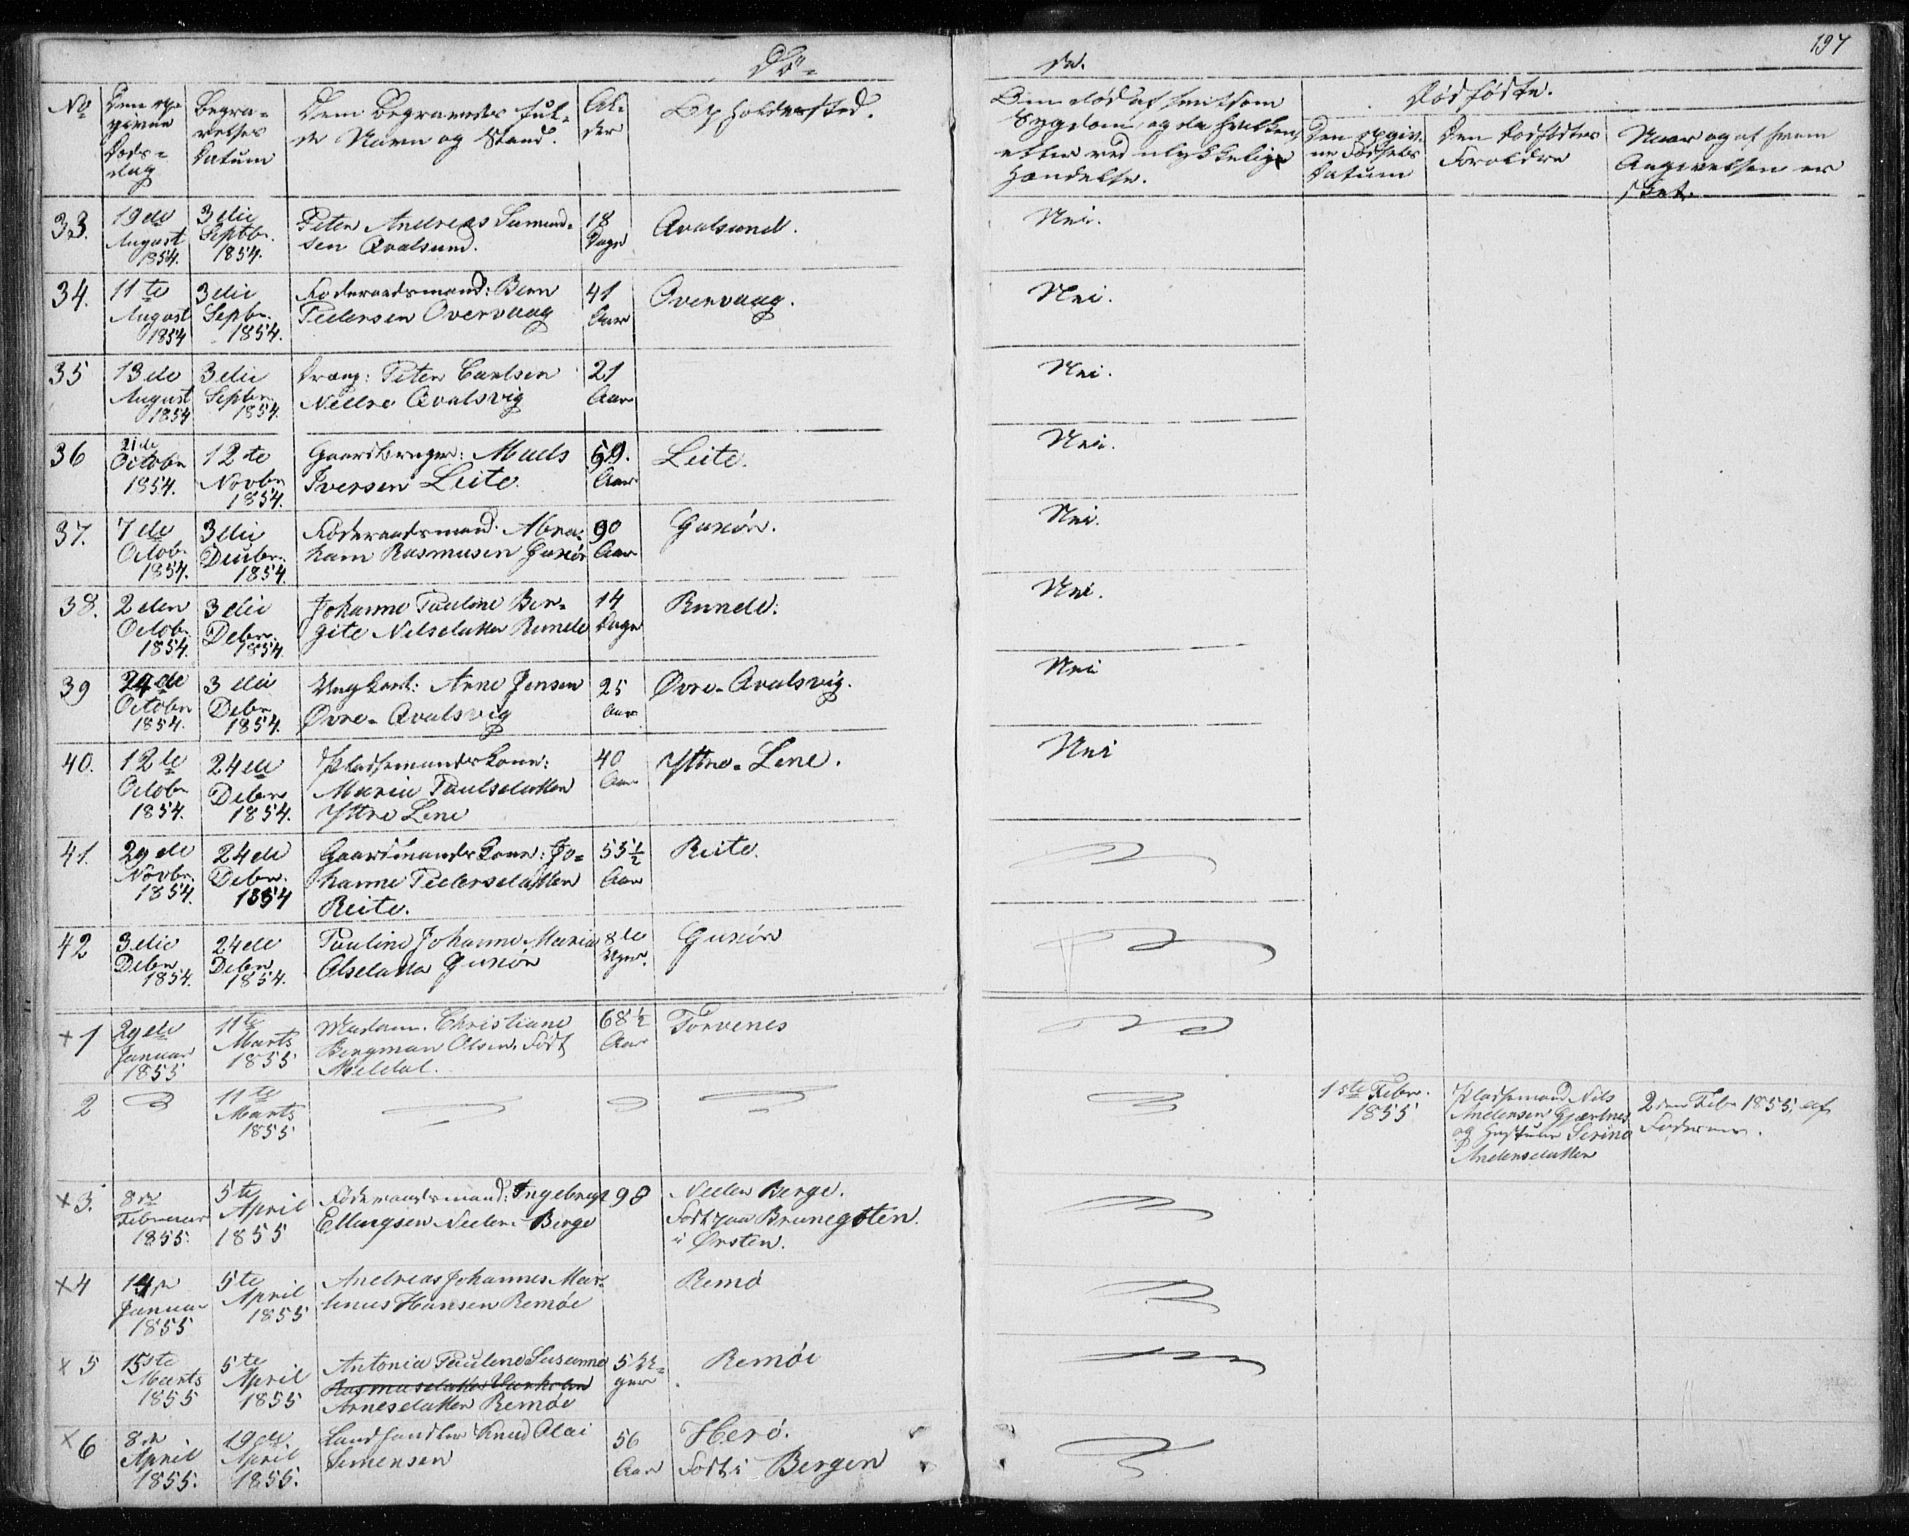 Dö-
de.
197
No
Den op-
givne
Døds-
dag
Begra-
velses
Datum
Dem Begravedes ful-
de Navn og Stand.
Al-
der
Opholdssted.
Om død af smitsom
Sygdom, og da hvilken,
eller ved ulykkelige
Hændelse.
Dødfødte.
Den opgiv-
ne Fødsels
Datum
Den Dødfødtes
Forældre
Naar og af hvem
Angivelsen er
skeet.
33. 19de August 1854. 3die Septbr. 1854. Peter Andreas Samund-
sen Qvalsund. 18 Dage Qvalsund. Nei.
34. 11te August 1854 3die Septbr. 1854. Føderaadsmand: Bern
Pedersen Overvaag 41 Aar Overvaag. Nei.
35 13de August 1854 3die Septbr. 1854. Dreng: Peter Carlsen
Nedre Qvalsvig 21 Aar Nei.
36 21de Octobr 1854. 12te Novbr 1854. Gaardbruger: Mads
Iversen Leite. 59. Aar Leite. Nei.
37. 7de Octob. 1854. 3die Decbr. 1854. Føderaadsmand: Abra-
ham Rasmusen Gurskø 90 Aar Nei.
38. 2den Octob. 1854. 3die Debr. 1854. Johanne Pauline Ber-
gite Nilsdatter Runde 14 Dage Runde. Nei.
39 24de Octobr 1854. 3die Debr. 1854. Ungkarl: Arne Jensen
Øvre-Qvalsvig 25 Aar Øvre-Qvalsvig. Nei
40. 12te Octobr 1854. 24de Debr 1854. Pladsemandskone:
Maria Paulsdatter
Yttre Lene 40 Aar Yttre-Lene. Nei
41. 29de Novbr. 1854. 24de Debr. 1854 Gaardmandskone: Jo-
hanne Pedersdatter
Reite. 55 1/2 Aar Reite.
42 3die Debr. 1854. 24de Debr. 1854. Pauline Johanne Maria
Olsdatter 8te Uger.
x 1 29de Januar 1855 11te Marts 1855 Madam. Christiane
Bergman Olsen. Født
Meldal. 68 1/2 Aar Torvenes
2 11te Marts 1855 1ste Febr. 1855 Pladsemand Nils
Andersen Gjærdnes
og Hustrue Serina
Andersdatter 2den Feb. 1855, af
Faderen.
x 3. 8de Februar 1855. 5te April 1855 Føderaadsmand: Ingebrigt
Ellingsen Neder-Berge 98 Neder Berge.
Født paa Brunegoten
i Ørsten.
x 4 14de Januar 1855 5te April 1855 Andreas Johannes Mar-
tinus Hansen Remøe Remø
x 5 15de Marts 1855 5te April 1855 Antonia Pauline Susanne
Arnesdatter Remøe 5 U-
ger Remøe
x 6 8de April 1855. 19de April 1855. Landhandler Knud Olai
Simensen 56 Aar Herö.
Født i Bergen